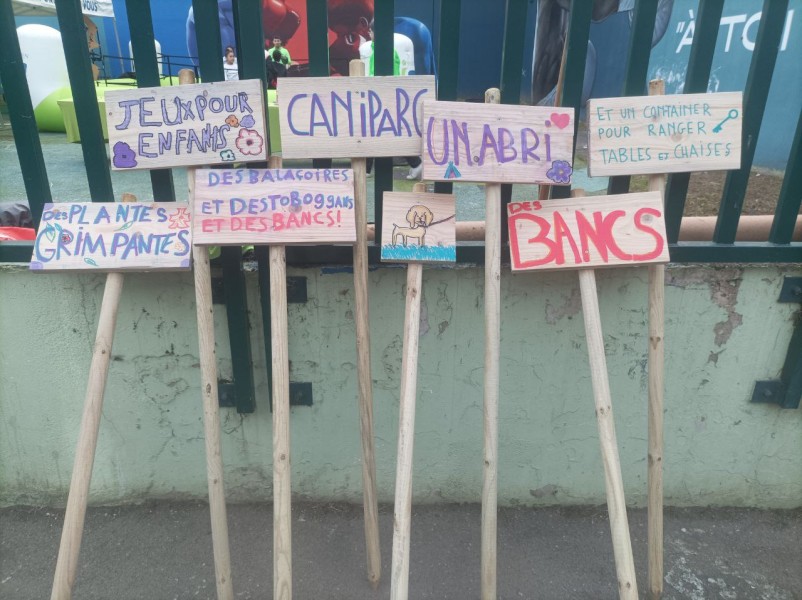 JEUX POUR
ENFANTS
CANiPARC
UN ABRi
ET UN CONTAINER
POUR RANGER
TABLES ET CHAISES
DES PLANTES
GRIMPANTES
DES BALAÇOIRES
ET DES TOBOGGANS
ET DES BANCS!
DES
BANCS